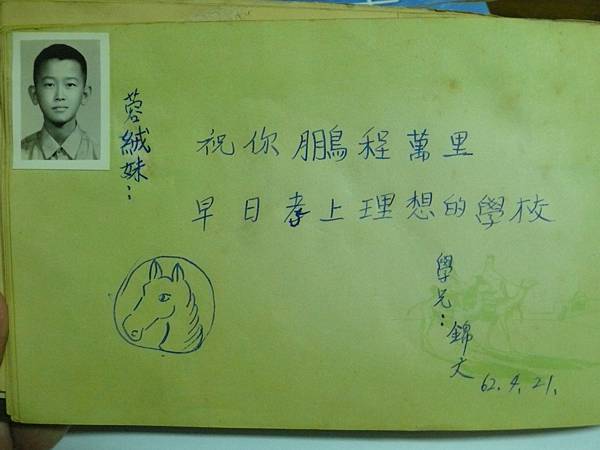 蓉絨妹：
祝你鵬程萬里
早日考上理想的學校
學兄：
錦文
62.4.21.